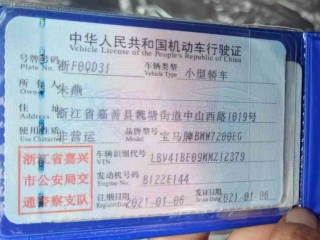 中华人民共和国机动车行驶证
Vehicle License of the People's Republic of China
号牌号码 浙F0QD31 车辆类型 小型轿车
Plate No. Vehicle Type
所有人 朱燕
住址 浙江省嘉善县魏塘街道中山西路1019号
使用性质 非营运 宝马牌BMW7200FG
浙江省嘉兴
市公安局交
通警察支队
车辆识别代号 LBV41BF09MMZ12379
VIN
发动机号码 B122E144
Engine No.
注册日期 2021-01-06 发证日期 2021-01-06